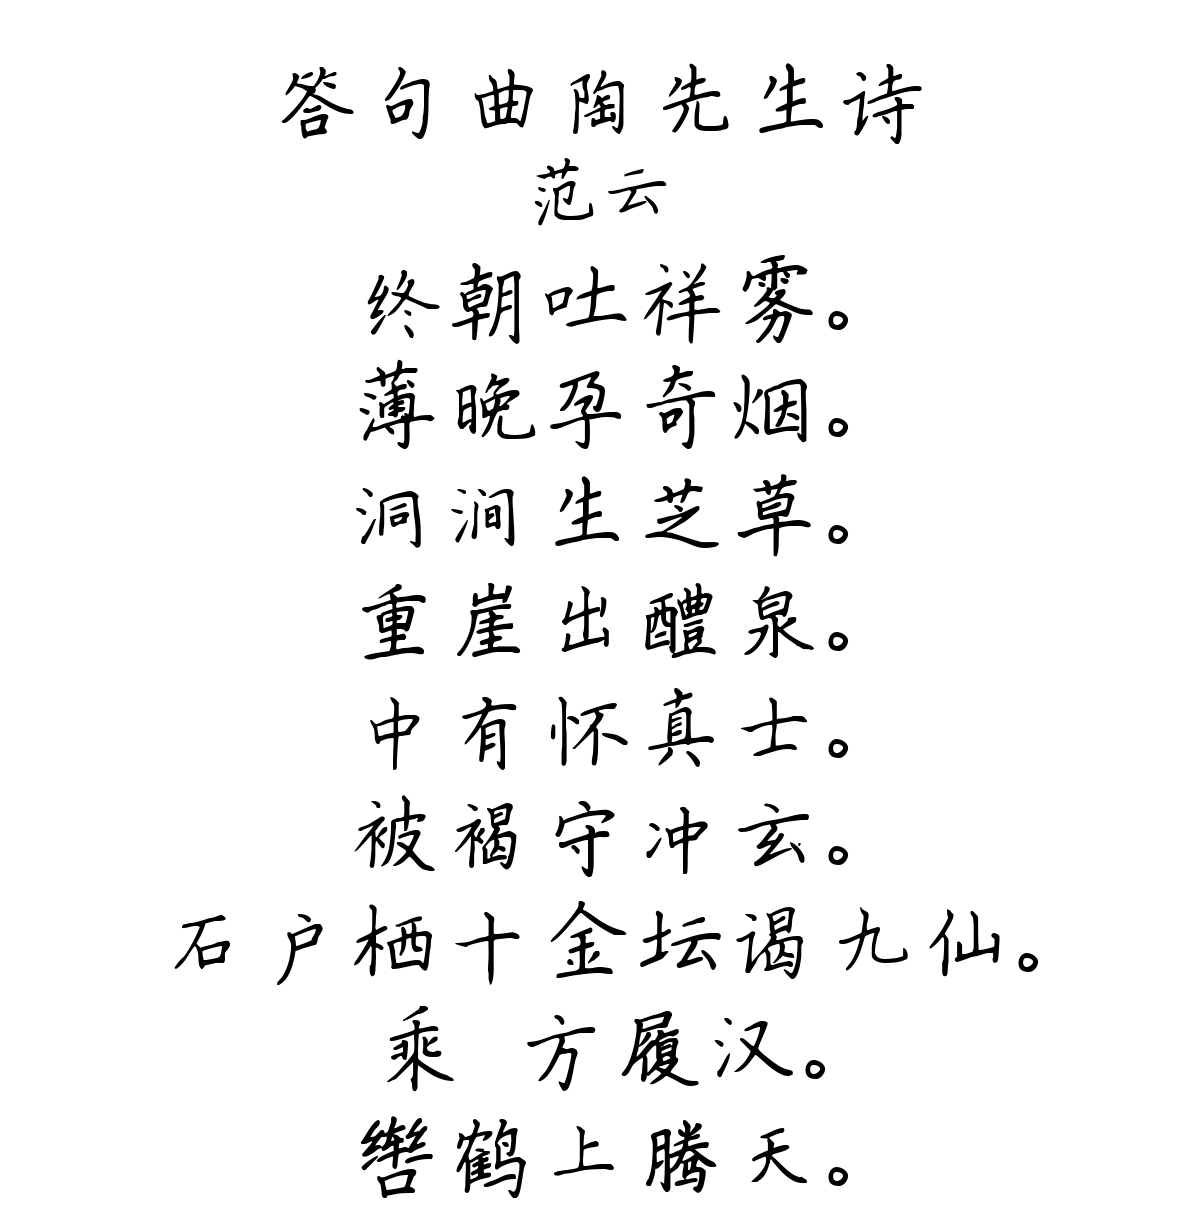 答句曲陶先生诗
范云
终朝吐祥雾。
薄晚孕奇烟。
洞涧生芝草。
重崖出醴泉。
中有怀真士。
被褐守冲玄。
石户栖十金坛谒九仙。
乘 方履汉。
辔鹤上腾天。